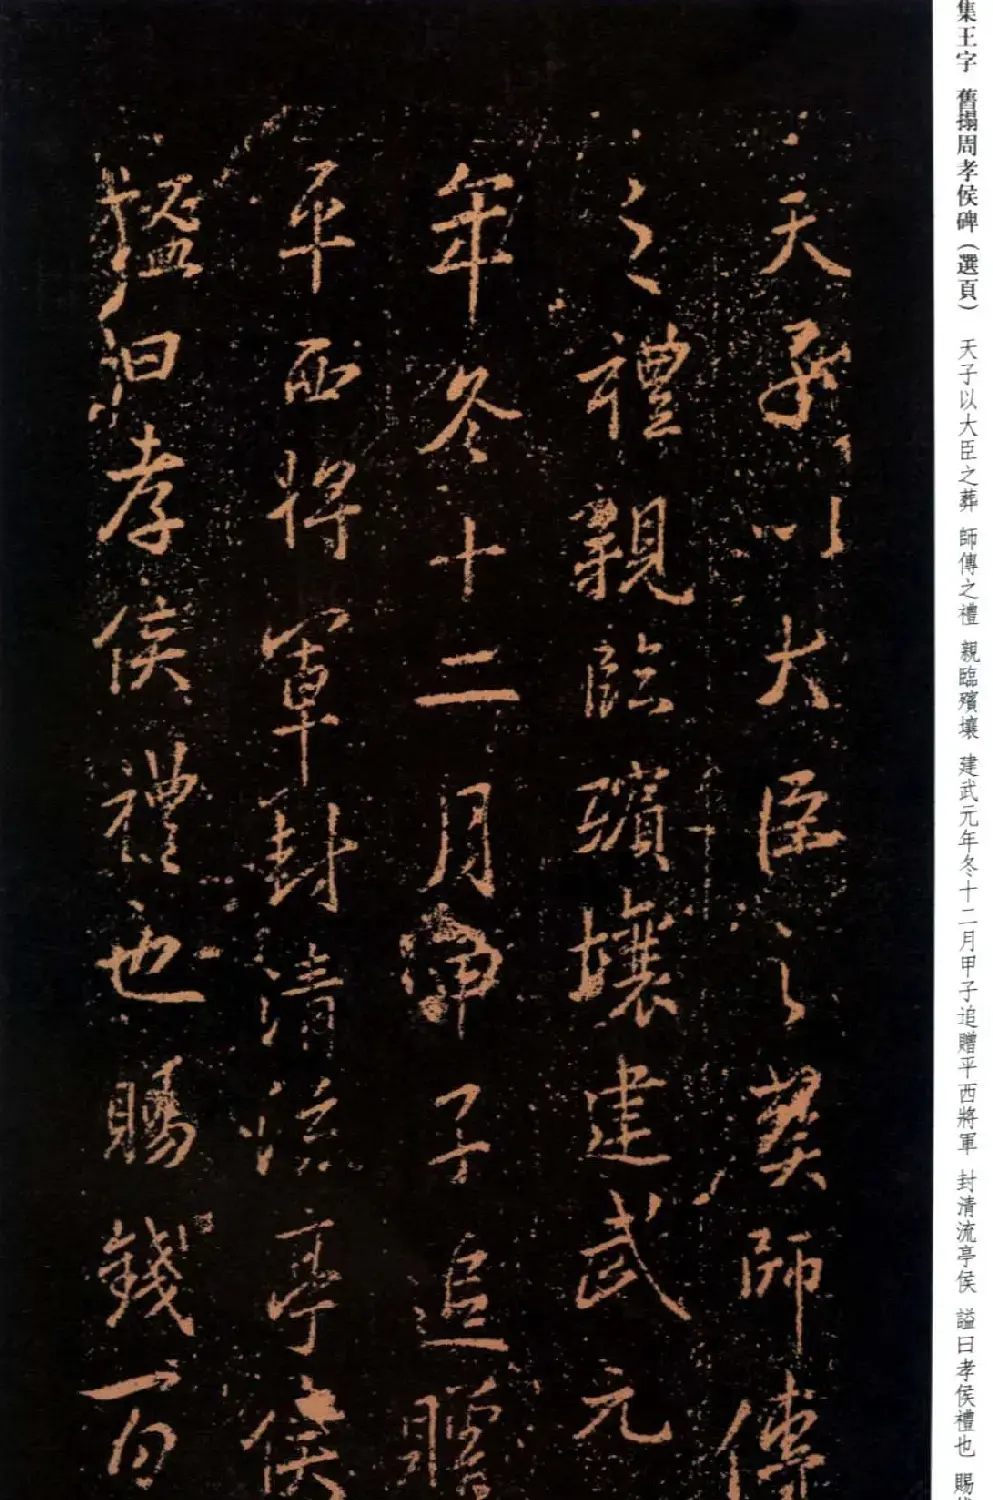 集王字 舊搨周孝侯碑(選頁) 天子以大臣之葬 師傅之禮 親臨殯壤 建武元年冬十二月甲子追贈平西將軍 封清流亭侯 諡曰孝侯禮也 賜
天子以大臣之葬師傅
之禮親臨殯壤建武元
年冬十二月甲子追贈
平西將軍封清流亭侯
諡曰孝侯禮也賜錢百